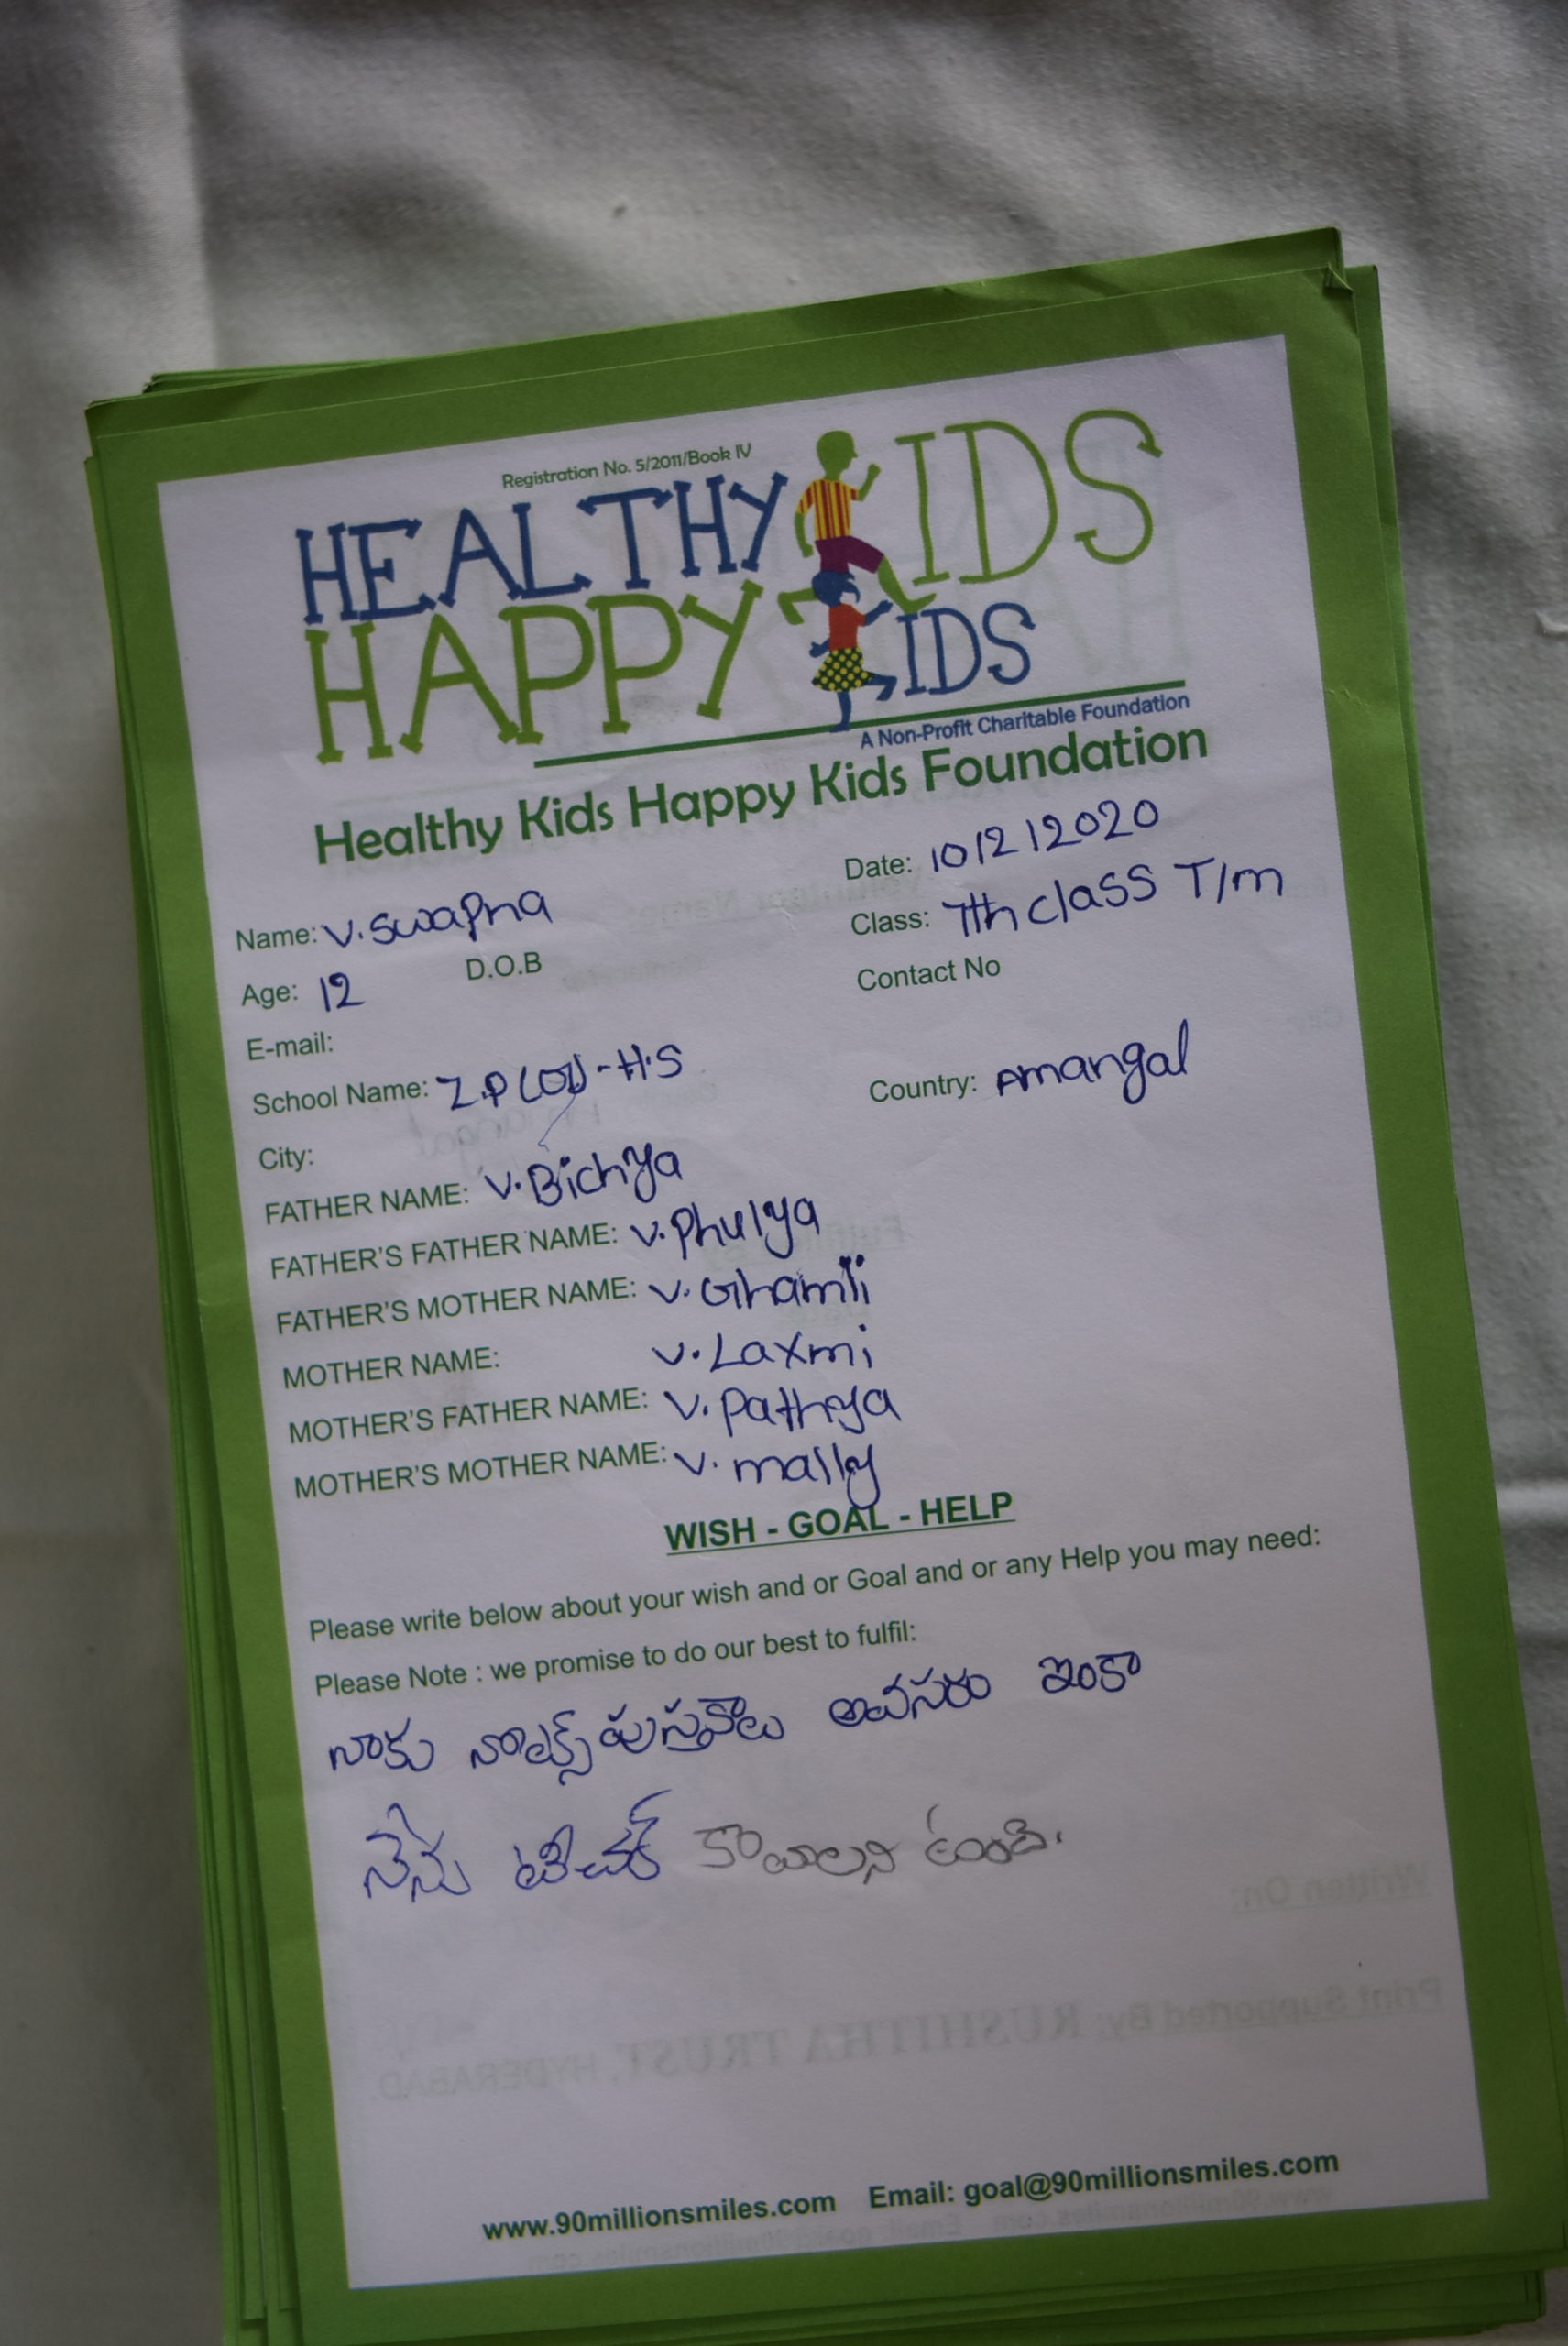 Registration No. 5/2011/Book IV
HEALTHY KIDS
HAPPY KIDS
A Non-Profit Charitable Foundation
Healthy Kids Happy Kids Foundation
Date: 10/2/2020
Name: V. Swapna
Class: 7th class T/m
Age: 12 D.O.B
Contact No
E-mail:
School Name: Z.P -H.S
Country: Amangal
City:
FATHER NAME: V. Bichya
FATHER'S FATHER NAME: V. Phulya
FATHER'S MOTHER NAME: V. Ghamli
MOTHER NAME: V. Laxmi
MOTHER'S FATHER NAME: V. Pathya
MOTHER'S MOTHER NAME: V. mally
WISH - GOAL - HELP
Please write below about your wish and or Goal and or any Help you may need:
Please Note : we promise to do our best to fulfil:
నాకు నోట్స్ పుస్తకాలు అవసరం ఇంకా
నేను టీచర్ కావాలని ఉంది.
Written On:
Print Supported By: RUSHITHA TRUST, HYDERABAD
www.90millionsmiles.com Email: goal@90millionsmiles.com